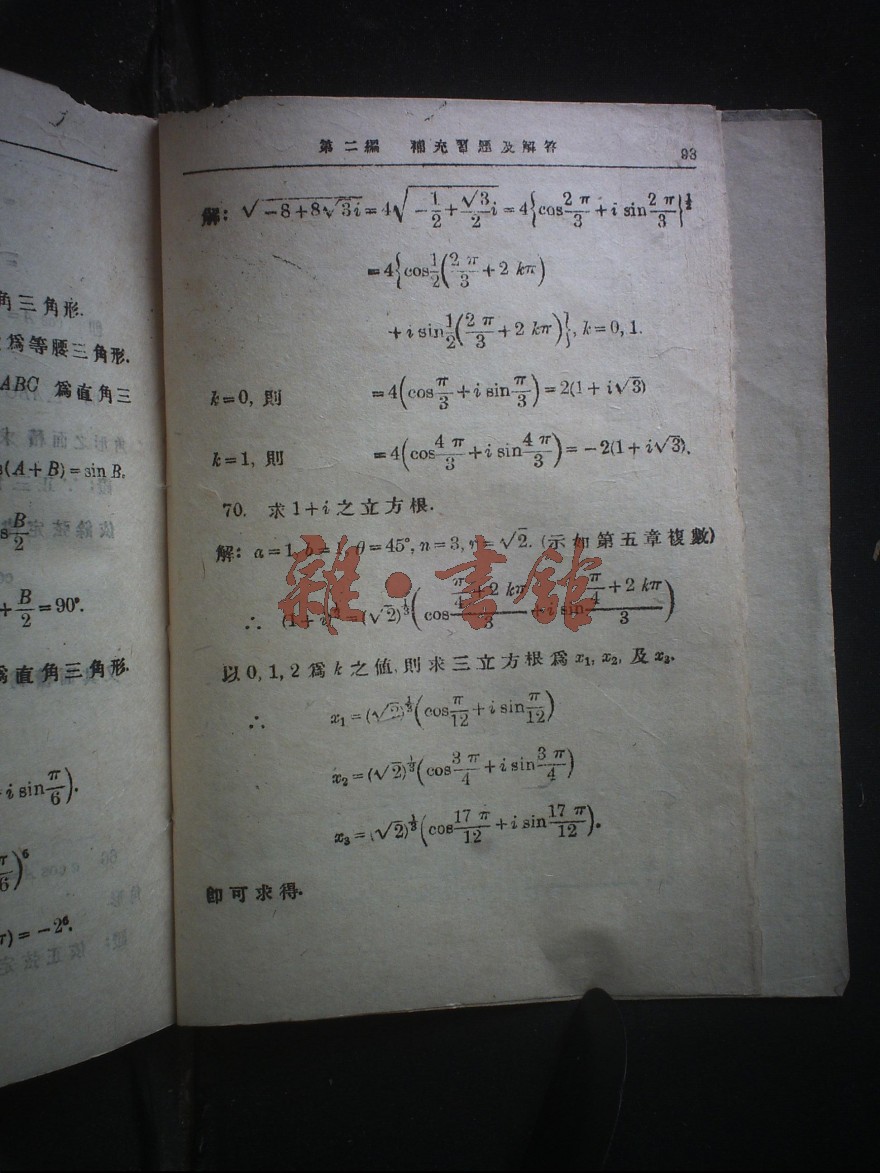 角三角形.
爲等腰三角形.
ABC 爲直角三
(A+B)=sin B.
B/2
+B/2=90°.
爲直角三角形.
i sin π/6).
)⁶
)=-2⁶.
第二編 補充習題及解答 93
解: √(-8+8√3i)=4√(-1/2+√3/2 i)=4{cos 2π/3+i sin 2π/3}^½
=4{cos 1/2(2π/3+2kπ)
+i sin 1/2(2π/3+2kπ)}, k=0, 1.
k=0, 則 =4(cos π/3+i sin π/3)=2(1+i√3)
k=1, 則 =4(cos 4π/3+i sin 4π/3)=-2(1+i√3).
70. 求1+i之立方根.
解: a=1, b= θ=45°, n=3, √2. (示如第五章複數)
雜·書館
∴ (1+i) =(√2)^⅓(cos (π/4+2kπ)/3+i sin (π/4+2kπ)/3)
以0, 1, 2爲k之值, 則求三立方根爲x₁, x₂, 及x₃.
∴ x₁=(√2)^⅓(cos π/12+i sin π/12)
x₂=(√2)^⅓(cos 3π/4+i sin 3π/4)
x₃=(√2)^⅓(cos 17π/12+i sin 17π/12).
卽可求得.